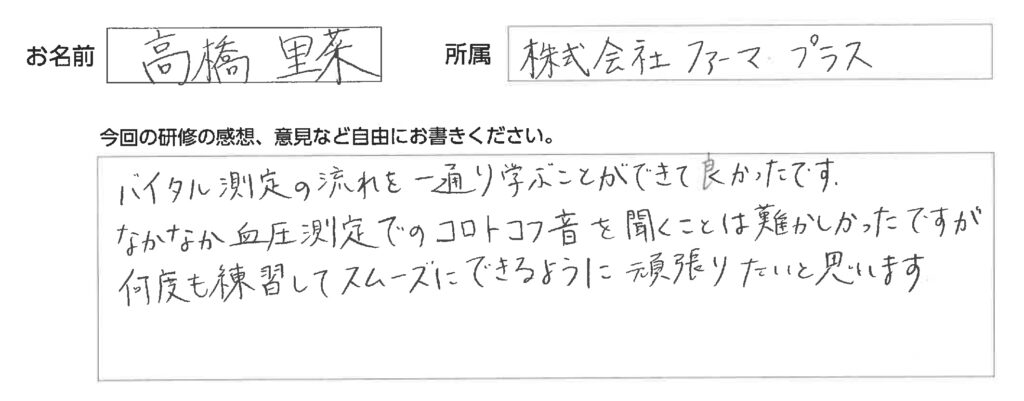 お名前 高橋 里菜 所属 株式会社 ファーマ プラス
今回の研修の感想、意見など自由にお書きください。
バイタル測定の流れを一通り学ぶことができて良かったです.
なかなか血圧測定でのコロトコフ音を聞くことは難かしかったですが
何度も練習してスムーズにできるように頑張りたいと思いします